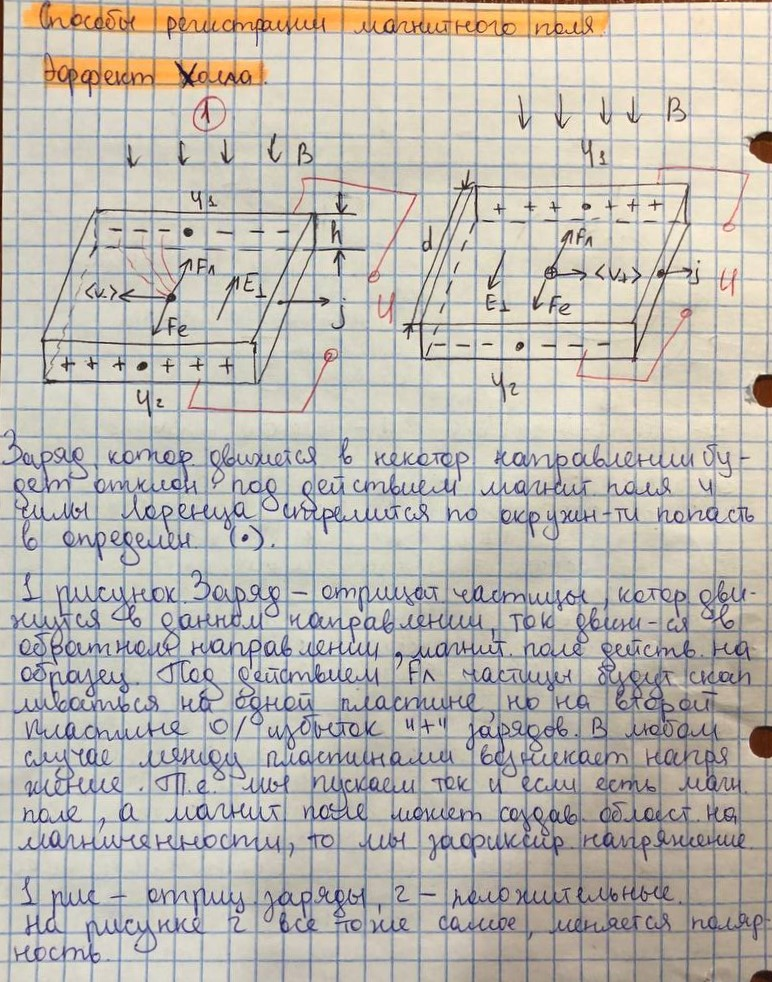 Способы регистрации магнитного поля.
Эффект Холла.
1
B
φ1
h
Fл
<v->
E⊥
j
Fe
U
+ + + • + + +
φ2
B
φ1
+ + + • + + +
d
Fл
<v+>
j
E⊥
Fe
U
φ2
Заряд, котор движется в некотор направлении бу-
дет отклон под действием магнит поля и
силы Лоренца стремится по окружн-ти попасть
в определен. (•).
1 рисунок. Заряд – отрицат частицы, котор дви-
жутся в данном направлении, ток движ-ся в
обратном направлении, магнит. поле действ. на
образец. Под действием Fл частицы будут скап
ливаться на одной пластине, но на второй
пластине о/ избыток "+" зарядов. В любом
случае между пластинами возникает напря
жение. Т.е. мы пускаем ток и если есть магн.
поле, а магнит поле может создав. област. на
магниченности, то мы зафиксир. напряжение
1 рис – отриц. заряды, 2 – положительные.
на рисунке 2 все тоже самое, меняется поляр-
ность.